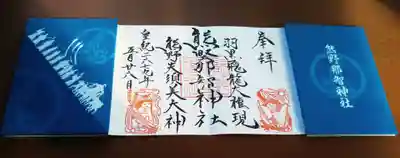 熊野那智神社
奉拝
羽黒飛龍大権現
熊野那智神社
熊野夫須美大神
皇紀二六七九年
五月廿八日